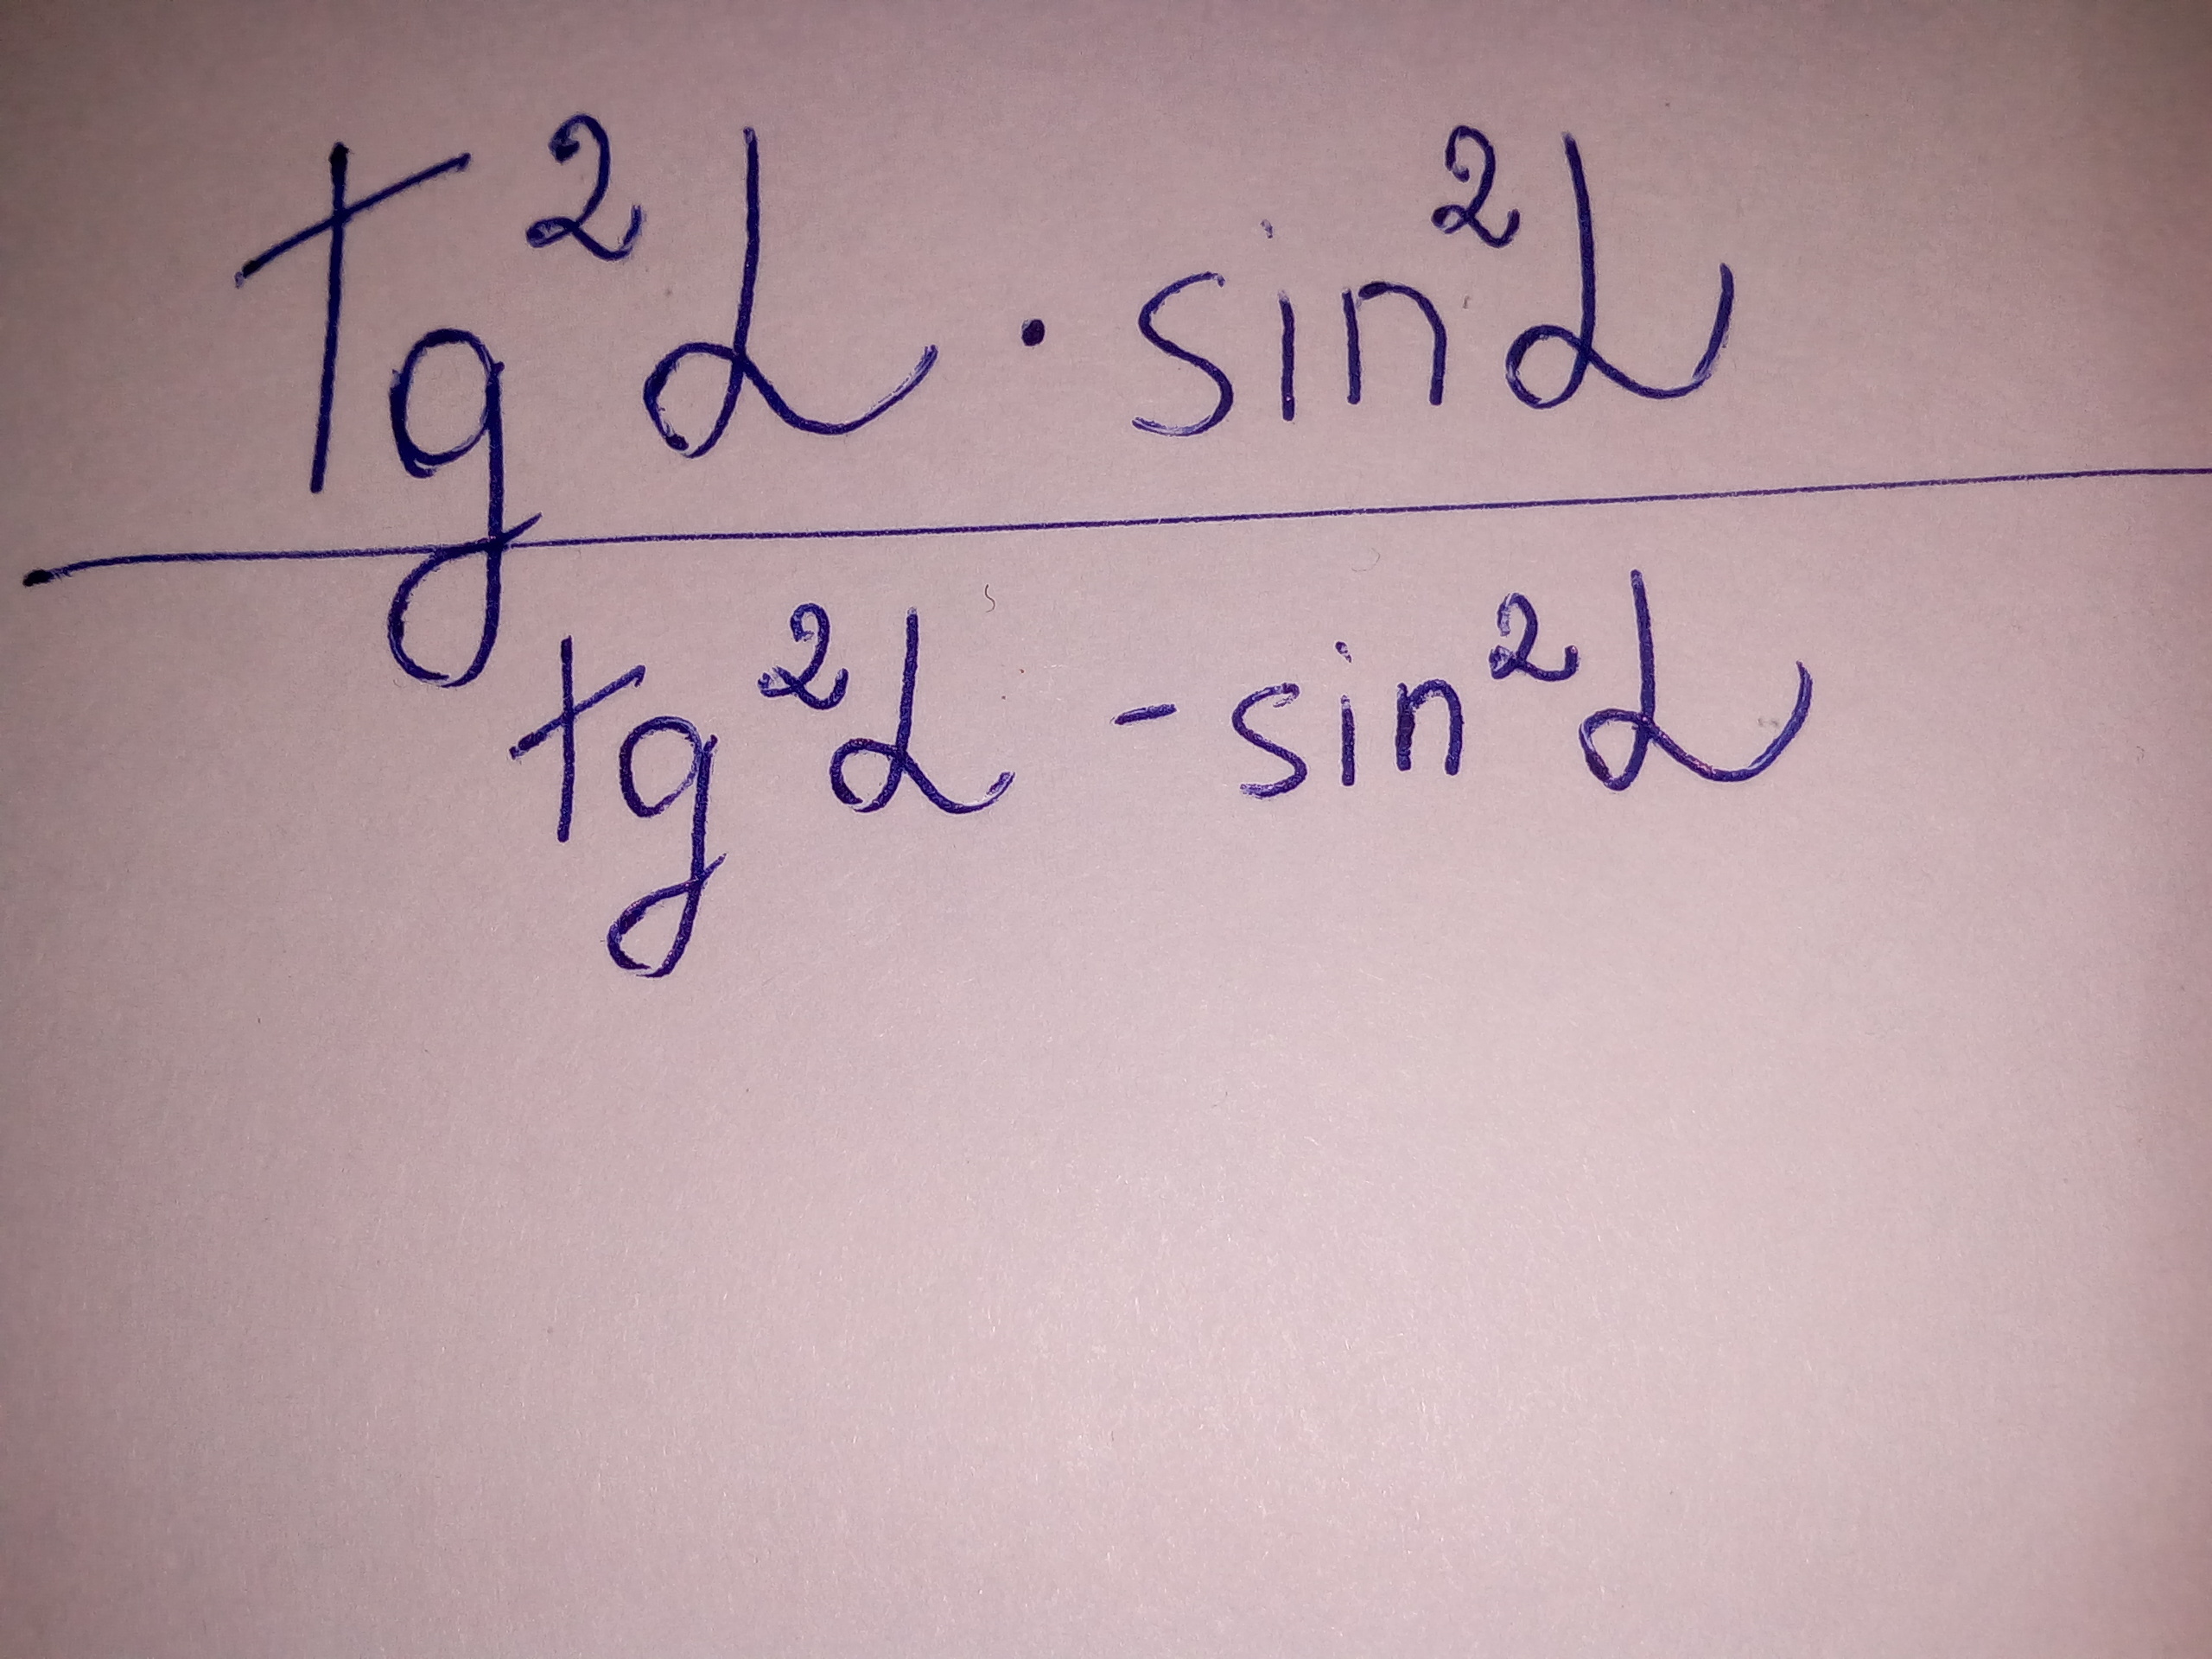 tg²α · sin²α
tg²α - sin²α